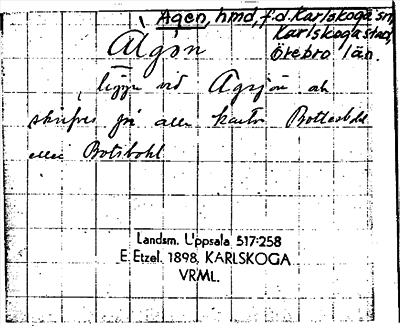 Agen, hmd, f.d. Karlskoga sn,
Karlskoga stad,
Örebro län.
Ågön
ligger vid Agsjön och
skrifves på alla kartor Bottesbol
eller Botsbohl
Landsm. Uppsala 517:258
E. Etzel. 1898, KARLSKOGA
VRML.